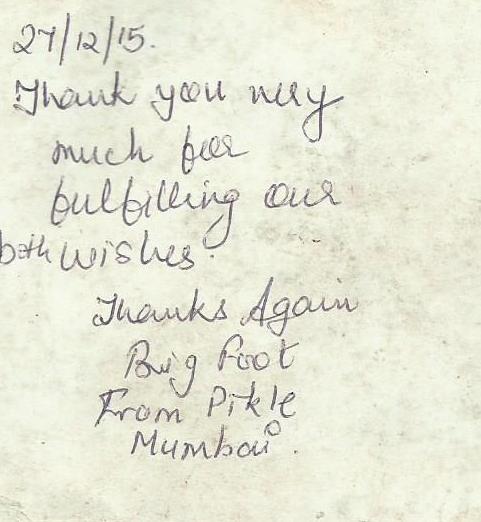 27/12/15.
Thank you very
much for
fulfilling our
both wishes.
Thanks Again
Big Foot
From Pikle
Mumbai.